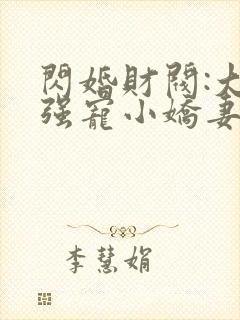 閃婚財閥:大
强寵小嬌妻
李慧娟